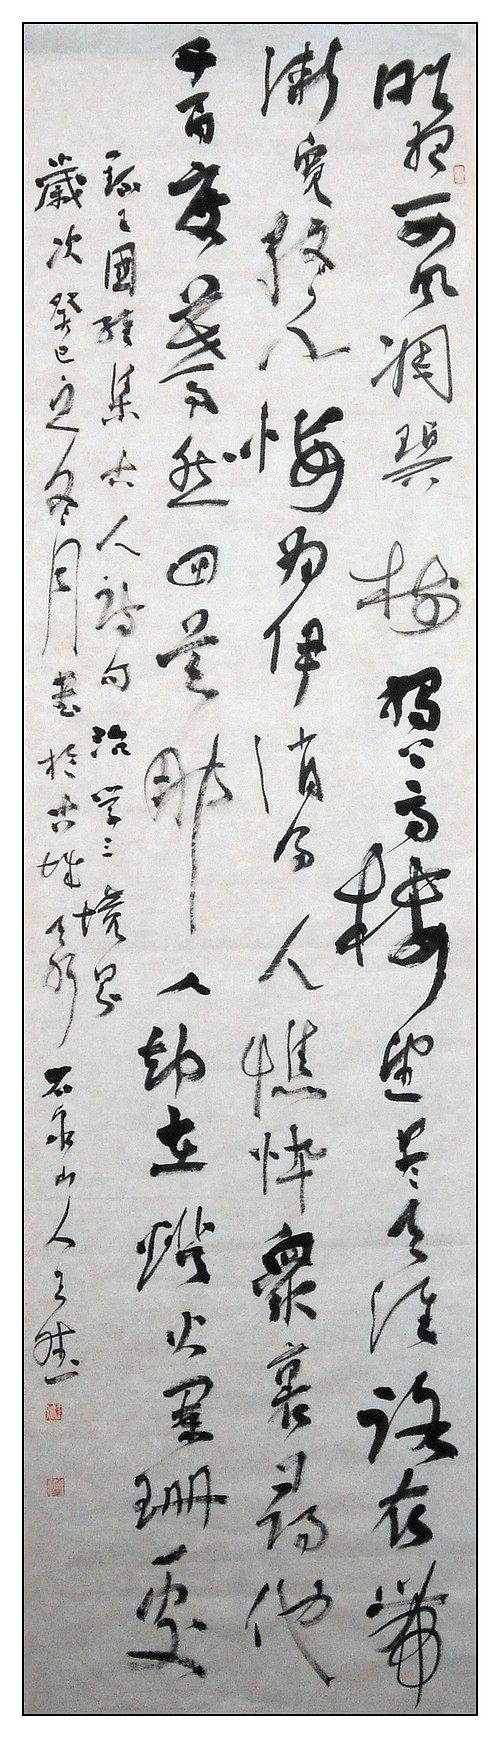 昨夜西风凋碧樹獨上高楼望尽天涯路衣帶
漸寬終不悔為伊消得人憔悴衆裏尋他
千百度驀然回首那人却在燈火闌珊處
錄王國維集古人詩句治学三境界
歲次癸巳之冬月書於古城石泉山人王